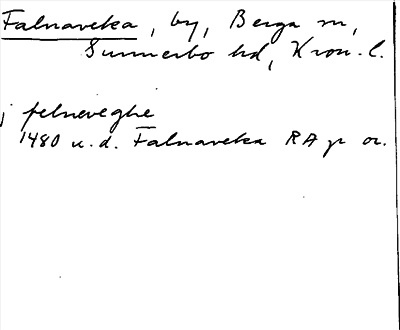 Falnaveka, by, Berga sn,
Sunnerbo hd, Kron. l.
j felneveghe
1480 u.d. Falnaveka RA p or.